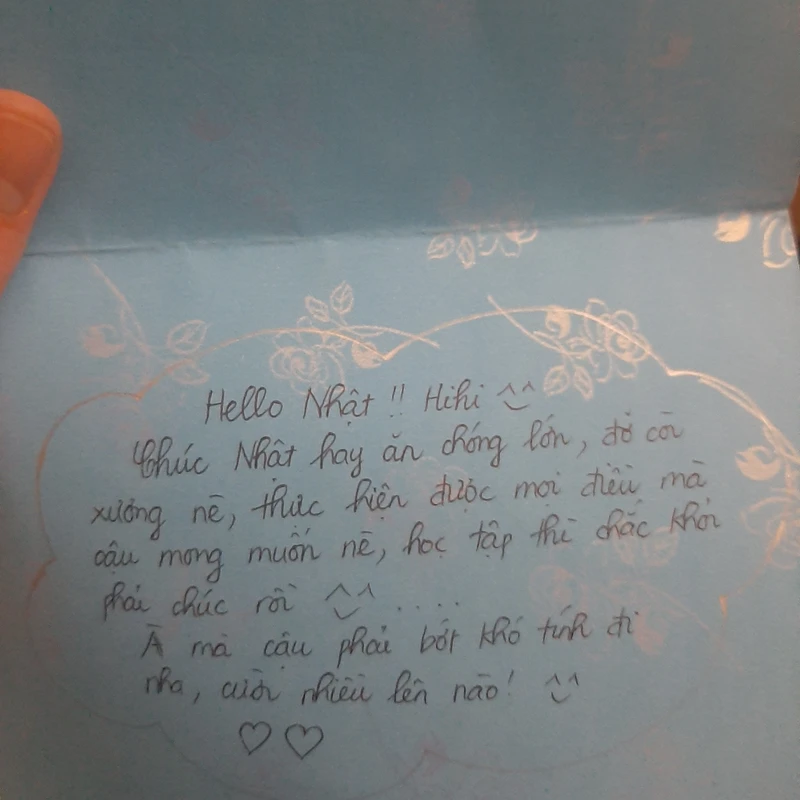 Hello Nhật !! Hihi ^‿^
Chúc Nhật hay ăn chóng lớn, đỡ còi
xương nè, thực hiện được mọi điều mà
cậu mong muốn nè, học tập thì chắc khỏi
phải chúc rồi ^‿^ ....
À mà cậu phải bớt khó tính đi
nha, cười nhiều lên nào! ^‿^
♡ ♡